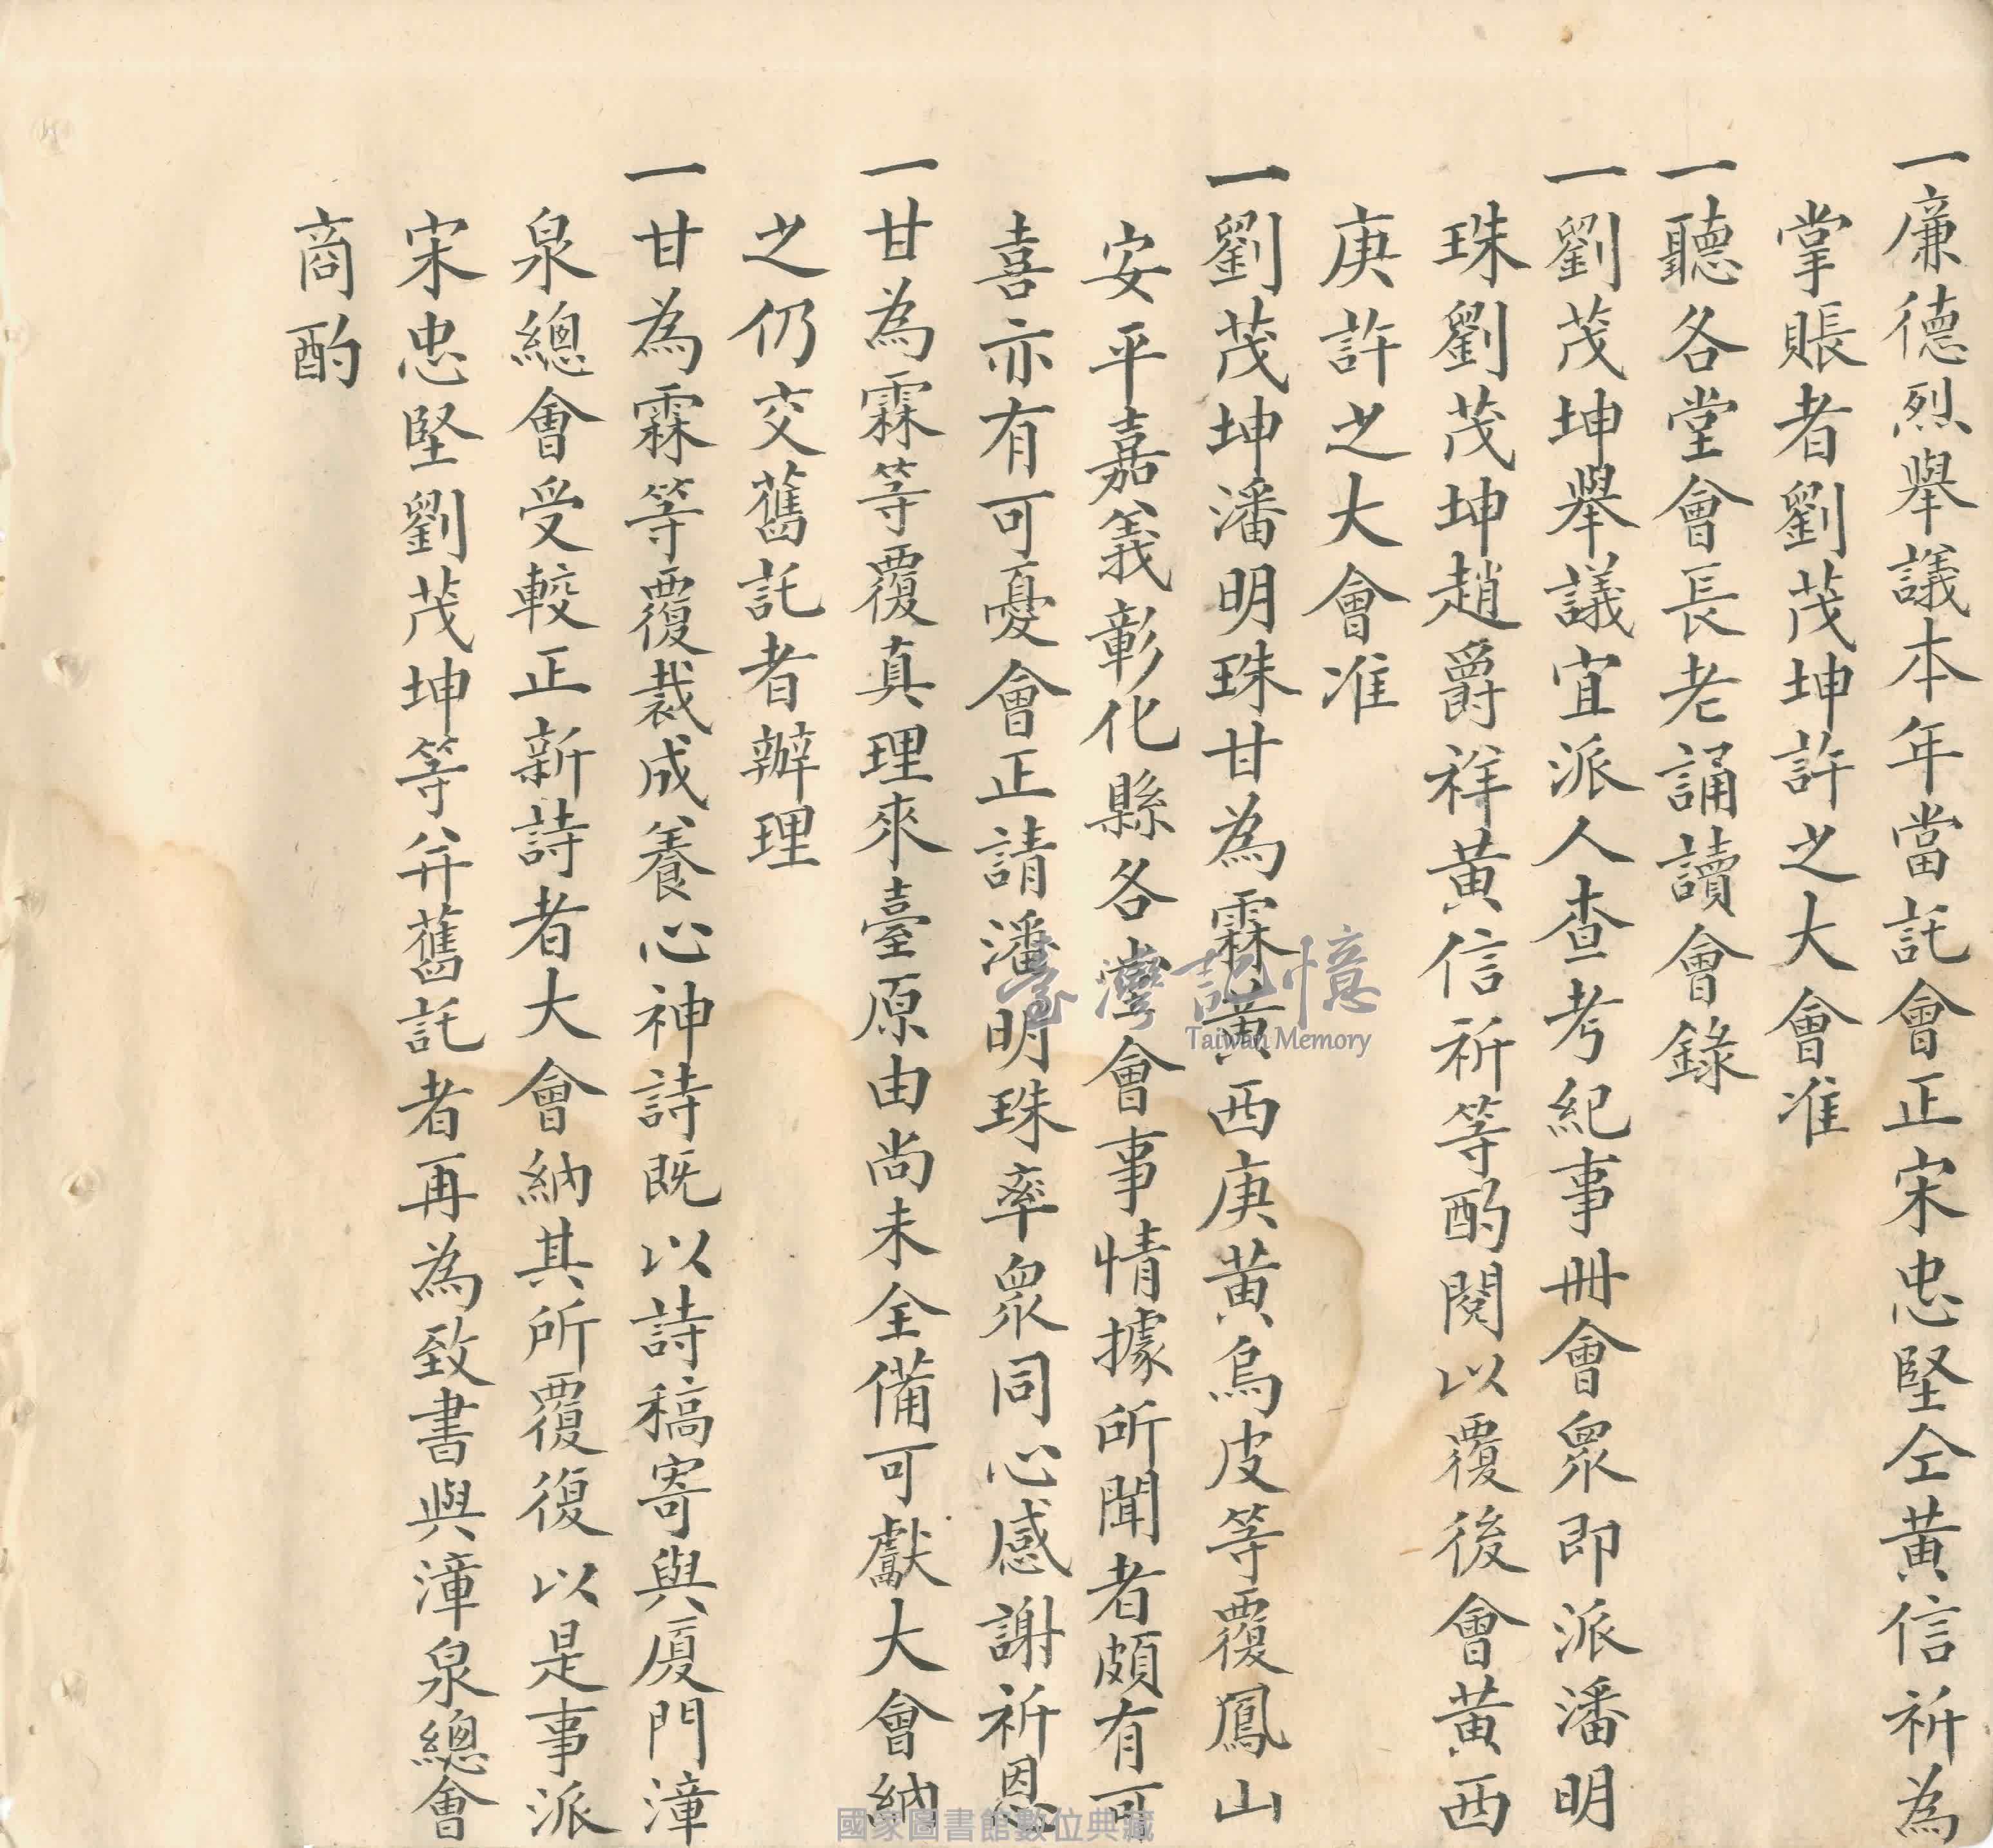 一廉德烈舉議本年當託會正宋忠堅仝黃信祈為
掌賬者劉茂坤許之大會准
一聽各堂會長老誦讀會錄
一劉茂坤舉議宜派人查考紀事冊會眾即派潘明
珠劉茂坤趙爵祥黃信祈等酌閱以覆後會黃西
庚許之大會准
一劉茂坤潘明珠甘為霖黃西庚黃烏皮等覆鳳山
安平嘉義彰化縣各堂會事情據所聞者頗有可
喜亦有可憂會正請潘明珠率眾同心感謝祈恩
一甘為霖等覆真理來臺原由尚未全備可獻大會納
之仍交舊託者辦理
一甘為霖等覆裁成養心神詩既以詩稿寄與廈門漳
泉總會受較正新詩者大會納其所覆復以是事派
宋忠堅劉茂坤等并舊託者再為致書與漳泉總會
商酌
臺灣記憶
Taiwan Memory
國家圖書館數位典藏